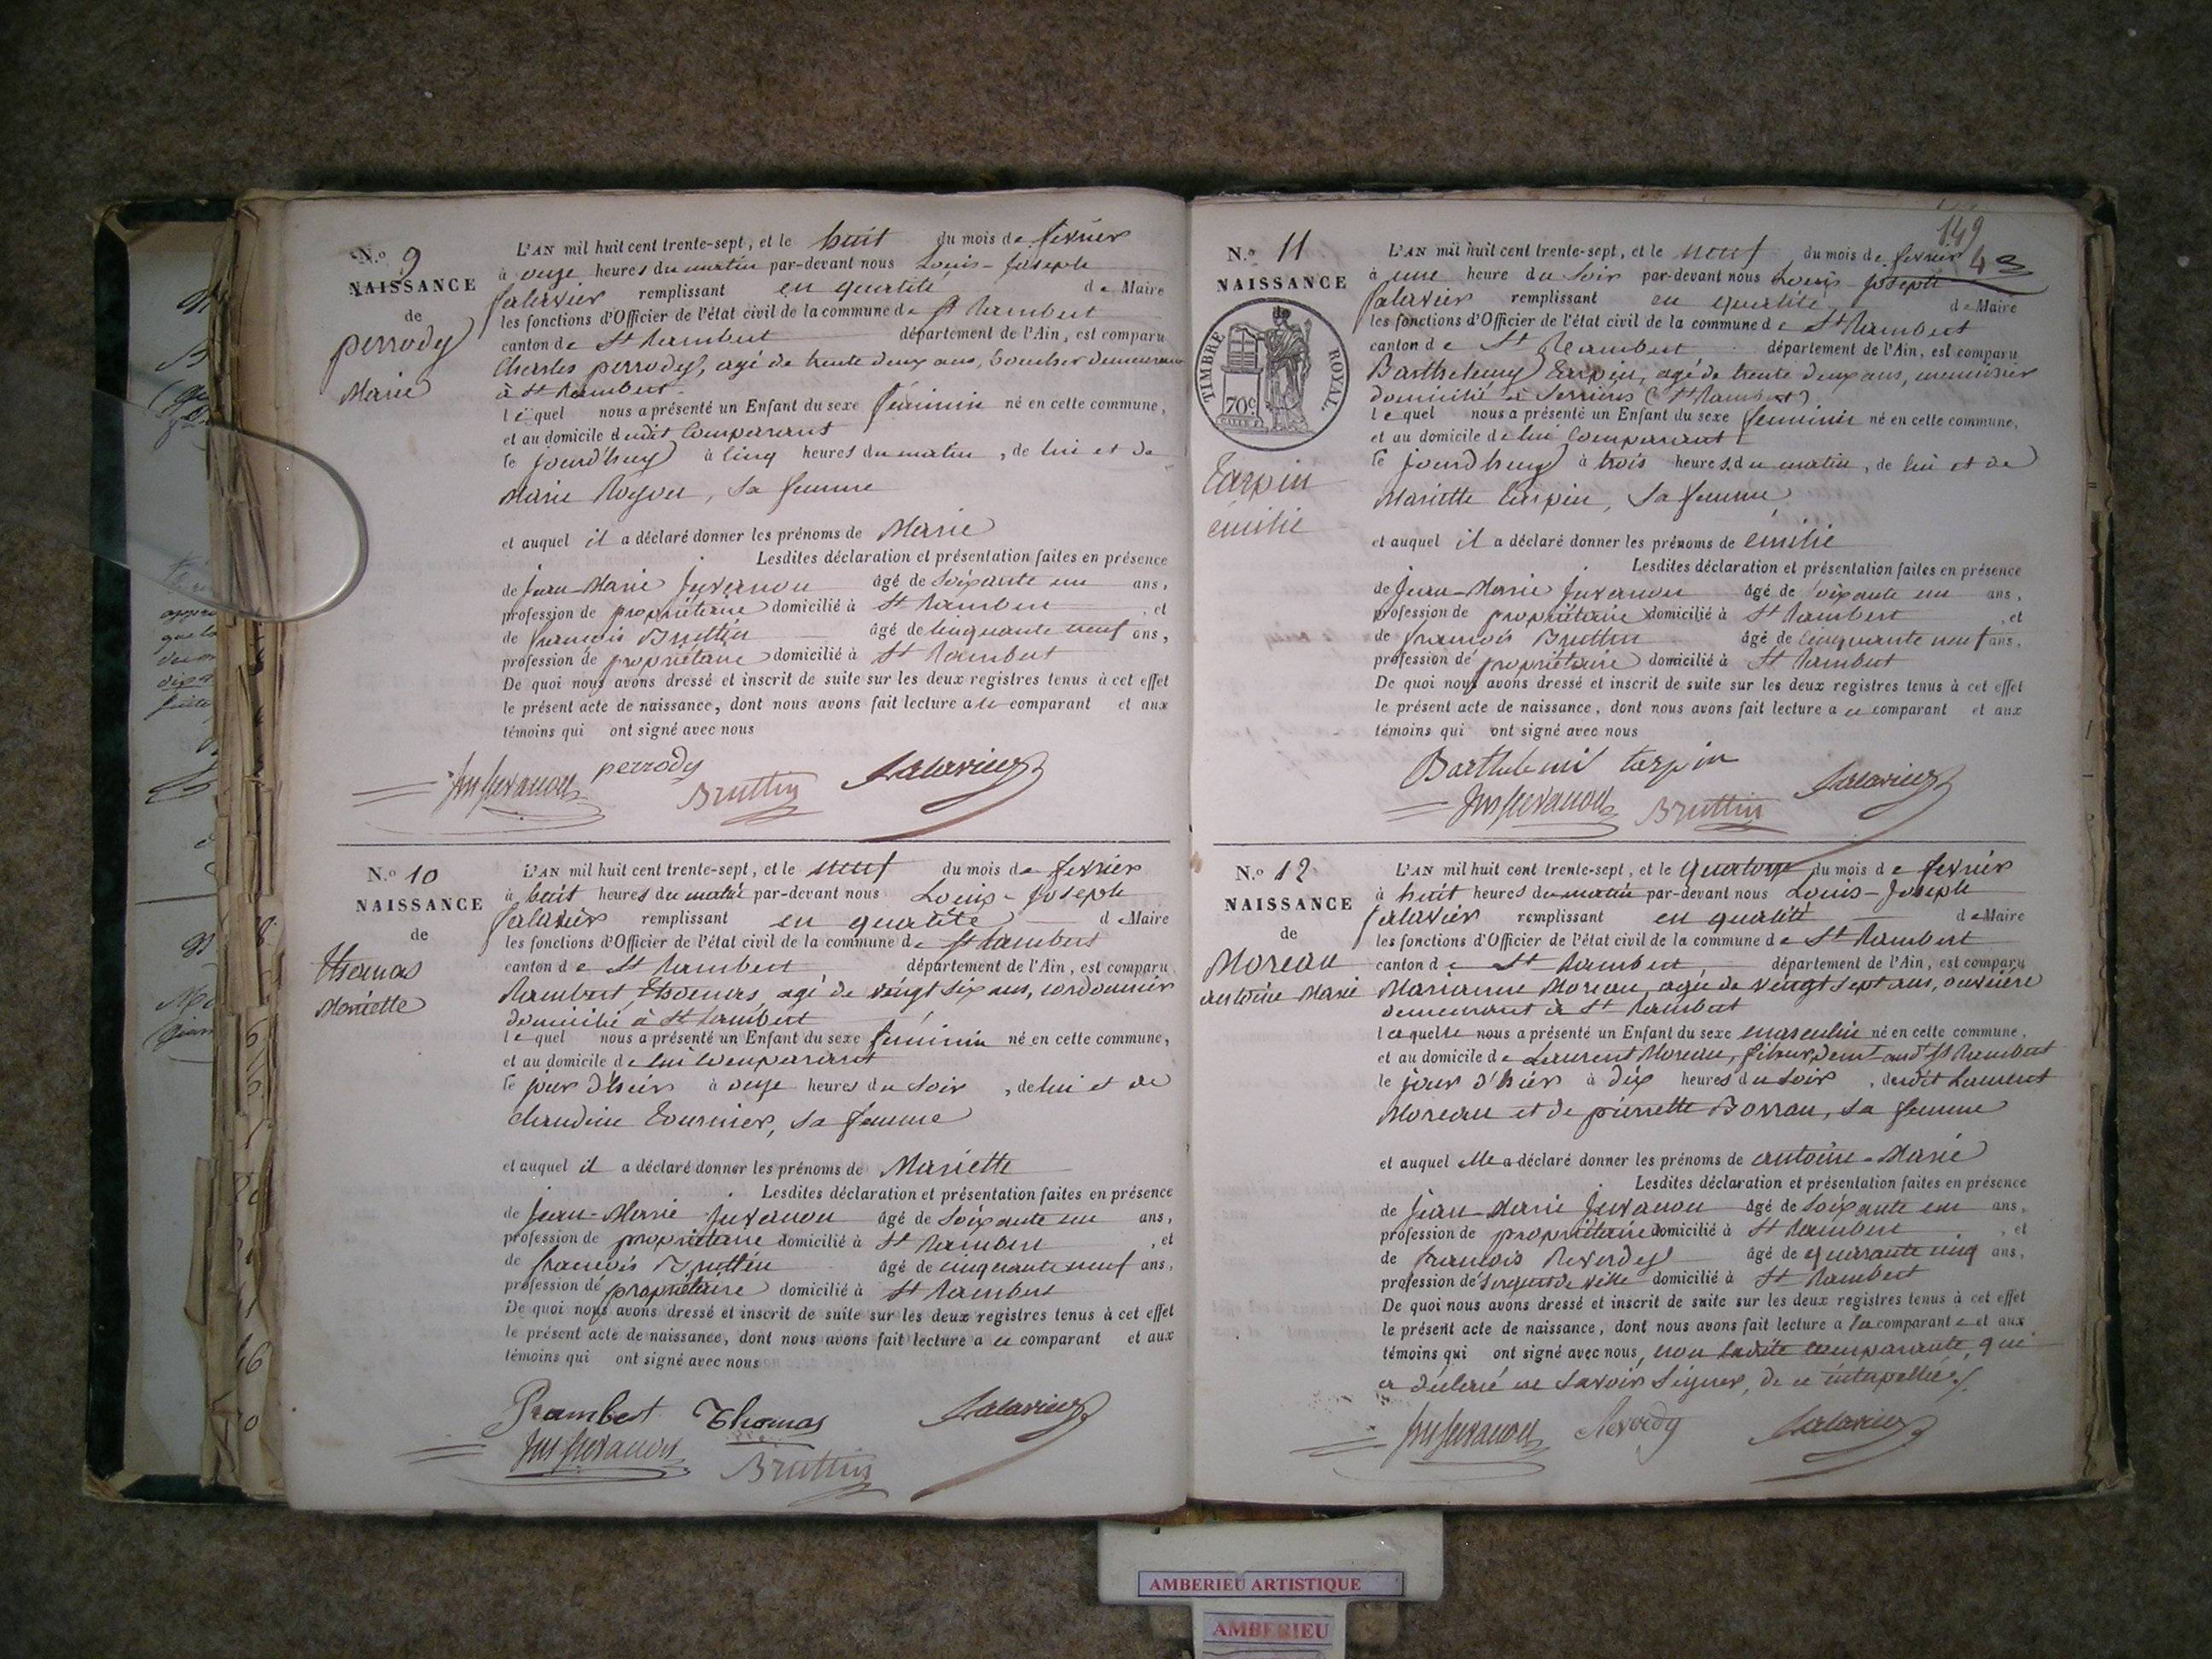 N.o 9
NAISSANCE
de
perrody
Marie
L'AN mil huit cent trente-sept, et le huit du mois de fevrier
à onze heures du matin par-devant nous Louis-Joseph
Salavier remplissant en qualité de Maire
les fonctions d'Officier de l'état civil de la commune de St Rambert
canton de St Rambert département de l'Ain, est comparu
Charles perrody, agé de trente deux ans, boucher demeurant
à St Rambert
lequel nous a présenté un Enfant du sexe féminin né en cette commune,
et au domicile dudit comparant
le jourd'huy à cinq heures du matin, de lui et de
Marie, sa femme
et auquel il a déclaré donner les prénoms de Marie
Lesdites déclaration et présentation faites en présence
de Jean-Marie Juvanon âgé de soixante un ans,
profession de propriétaire domicilié à St Rambert, et
de françois Bruttin âgé de cinquante neuf ans,
profession de propriétaire domicilié à St Rambert
De quoi nous avons dressé et inscrit de suite sur les deux registres tenus à cet effet
le présent acte de naissance, dont nous avons fait lecture a ce comparant et aux
témoins qui ont signé avec nous
perrody
Juvanon Bruttin Salavier
N.o 10
NAISSANCE
de
Thomas
Mariette
L'AN mil huit cent trente-sept, et le neuf du mois de fevrier
à huit heures du matin par-devant nous Louis-Joseph
Salavier remplissant en qualité de Maire
les fonctions d'Officier de l'état civil de la commune de St Rambert
canton de St Rambert, département de l'Ain, est comparu
Rambert Thomas, agé de vingt six ans, cordonnier
domicilié à St Rambert
lequel nous a présenté un Enfant du sexe féminin né en cette commune,
et au domicile de lui comparant
le jour d'hier à onze heures du soir, de lui et de
Claudine Tournier, sa femme
et auquel il a déclaré donner les prénoms de Mariette
Lesdites déclaration et présentation faites en présence
de Jean-Marie Juvanon âgé de soixante un ans,
profession de propriétaire domicilié à St Rambert, et
de françois Bruttin âgé de cinquante neuf ans,
profession de propriétaire domicilié à St Rambert
De quoi nous avons dressé et inscrit de suite sur les deux registres tenus à cet effet
le présent acte de naissance, dont nous avons fait lecture a ce comparant et aux
témoins qui ont signé avec nous
Rambert Thomas Salavier
Juvanon Bruttin
149
N.o 11
NAISSANCE
de
TIMBRE ROYAL.
70c
Tarpin
émilie
L'AN mil huit cent trente-sept, et le neuf du mois de fevrier
à une heure du soir par-devant nous Louis-Joseph
Salavier remplissant en qualité de Maire
les fonctions d'Officier de l'état civil de la commune de St Rambert
canton de St Rambert département de l'Ain, est comparu
Barthelemy Tarpin, agé de trente deux ans, menuisier
domicilié à Serrieres (St Rambert)
lequel nous a présenté un Enfant du sexe feminin né en cette commune,
et au domicile de lui comparant
le jourd'huy à trois heures du matin, de lui et de
Mariette Tarpin, sa femme,
et auquel il a déclaré donner les prénoms de émilie
Lesdites déclaration et présentation faites en présence
de Jean-Marie Juvanon âgé de soixante un ans,
profession de propriétaire domicilié à St Rambert, et
de françois Bruttin âgé de cinquante neuf ans,
profession de propriétaire domicilié à St Rambert
De quoi nous avons dressé et inscrit de suite sur les deux registres tenus à cet effet
le présent acte de naissance, dont nous avons fait lecture a ce comparant et aux
témoins qui ont signé avec nous
Barthelemil tarpin Salavier
Juvanon Bruttin
N.o 12
NAISSANCE
de
Moreau
antoine Marie
L'AN mil huit cent trente-sept, et le quatorze du mois de fevrier
à huit heures du matin par-devant nous Louis-Joseph
Salavier remplissant en qualité de Maire
les fonctions d'Officier de l'état civil de la commune de St Rambert
canton de St Rambert, département de l'Ain, est comparu
Marianne Moreau, agée de vingt sept ans, ouvrière
demeurant à St Rambert
laquelle nous a présenté un Enfant du sexe masculin né en cette commune,
et au domicile de Laurent Moreau, fileur, demt audt St Rambert
le jour d'hier à dix heures du soir, dudit Laurent
Moreau et de pierrette Borron, sa femme
et auquel elle a déclaré donner les prénoms de antoine-Marie
Lesdites déclaration et présentation faites en présence
de Jean-Marie Juvanon âgé de soixante un ans,
profession de propriétaire domicilié à St Rambert, et
de françois Reverdy âgé de quarante cinq ans,
profession de sergent de ville domicilié à St Rambert
De quoi nous avons dressé et inscrit de suite sur les deux registres tenus à cet effet
le présent acte de naissance, dont nous avons fait lecture a la comparante et aux
témoins qui ont signé avec nous, non ladite comparante, qui
a déclaré ne savoir signer, de ce interpellée.
Juvanon Reverdy Salavier
AMBERIEU ARTISTIQUE
AMBERIEU